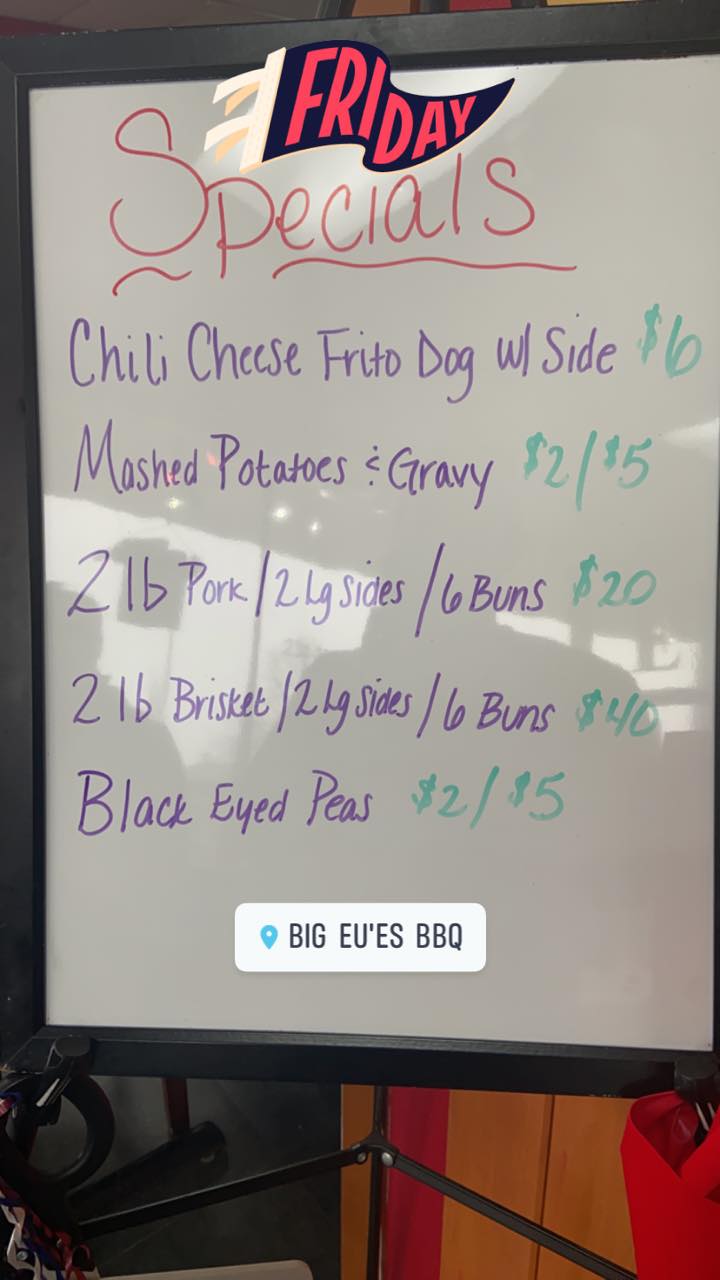 FRIDAY
Specials
Chili Cheese Frito Dog w/ Side $6
Mashed Potatoes & Gravy $2/$5
2 lb Pork/2 Lg Sides/6 Buns $20
2 lb Brisket/2 Lg Sides/6 Buns $40
Black Eyed Peas $2/$5
BIG EU'ES BBQ